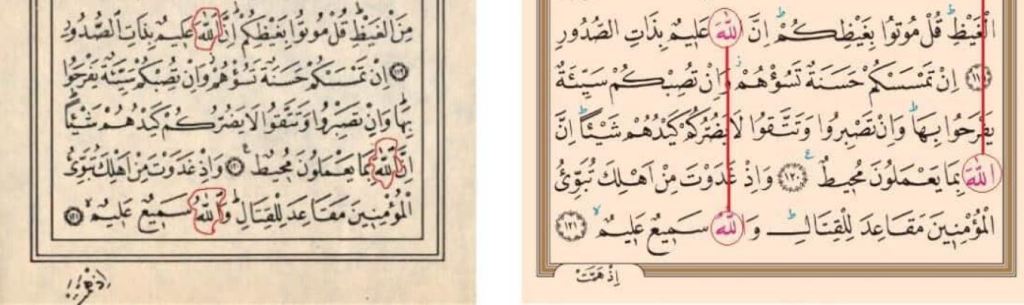 مِنَ الْغَيْظِ قُلْ مُوتُوا بِغَيْظِكُمْ اِنَّ اللّٰهَ عَلِيمٌ بِذَاتِ الصُّدُورِ
﴿١١٩﴾ اِنْ تَمْسَسْكُمْ حَسَنَةٌ تَسُؤْهُمْ وَاِنْ تُصِبْكُمْ سَيِّئَةٌ يَفْرَحُوا
بِهَا وَاِنْ تَصْبِرُوا وَتَتَّقُوا لَا يَضُرُّكُمْ كَيْدُهُمْ شَيْـًٔا
اِنَّ اللّٰهَ بِمَا يَعْمَلُونَ مُحِيطٌ ﴿١٢٠﴾ وَاِذْ غَدَوْتَ مِنْ اَهْلِكَ تُبَوِّئُ
الْمُؤْمِنِينَ مَقَاعِدَ لِلْقِتَالِ وَاللّٰهُ سَمِيعٌ عَلِيمٌ ﴿١٢١﴾
الْغَيْظِ قُلْ مُوتُوا بِغَيْظِكُمْ اِنَّ اللّٰهَ عَلِيمٌ بِذَاتِ الصُّدُورِ
﴿١١٩﴾ اِنْ تَمْسَسْكُمْ حَسَنَةٌ تَسُؤْهُمْ وَاِنْ تُصِبْكُمْ سَيِّئَةٌ
يَفْرَحُوا بِهَا وَاِنْ تَصْبِرُوا وَتَتَّقُوا لَا يَضُرُّكُمْ كَيْدُهُمْ شَيْـًٔا اِنَّ
اللّٰهَ بِمَا يَعْمَلُونَ مُحِيطٌ ﴿١٢٠﴾ وَاِذْ غَدَوْتَ مِنْ اَهْلِكَ تُبَوِّئُ
الْمُؤْمِنِينَ مَقَاعِدَ لِلْقِتَالِ وَاللّٰهُ سَمِيعٌ عَلِيمٌ ﴿١٢١﴾
اِذْ هَمَّتْ